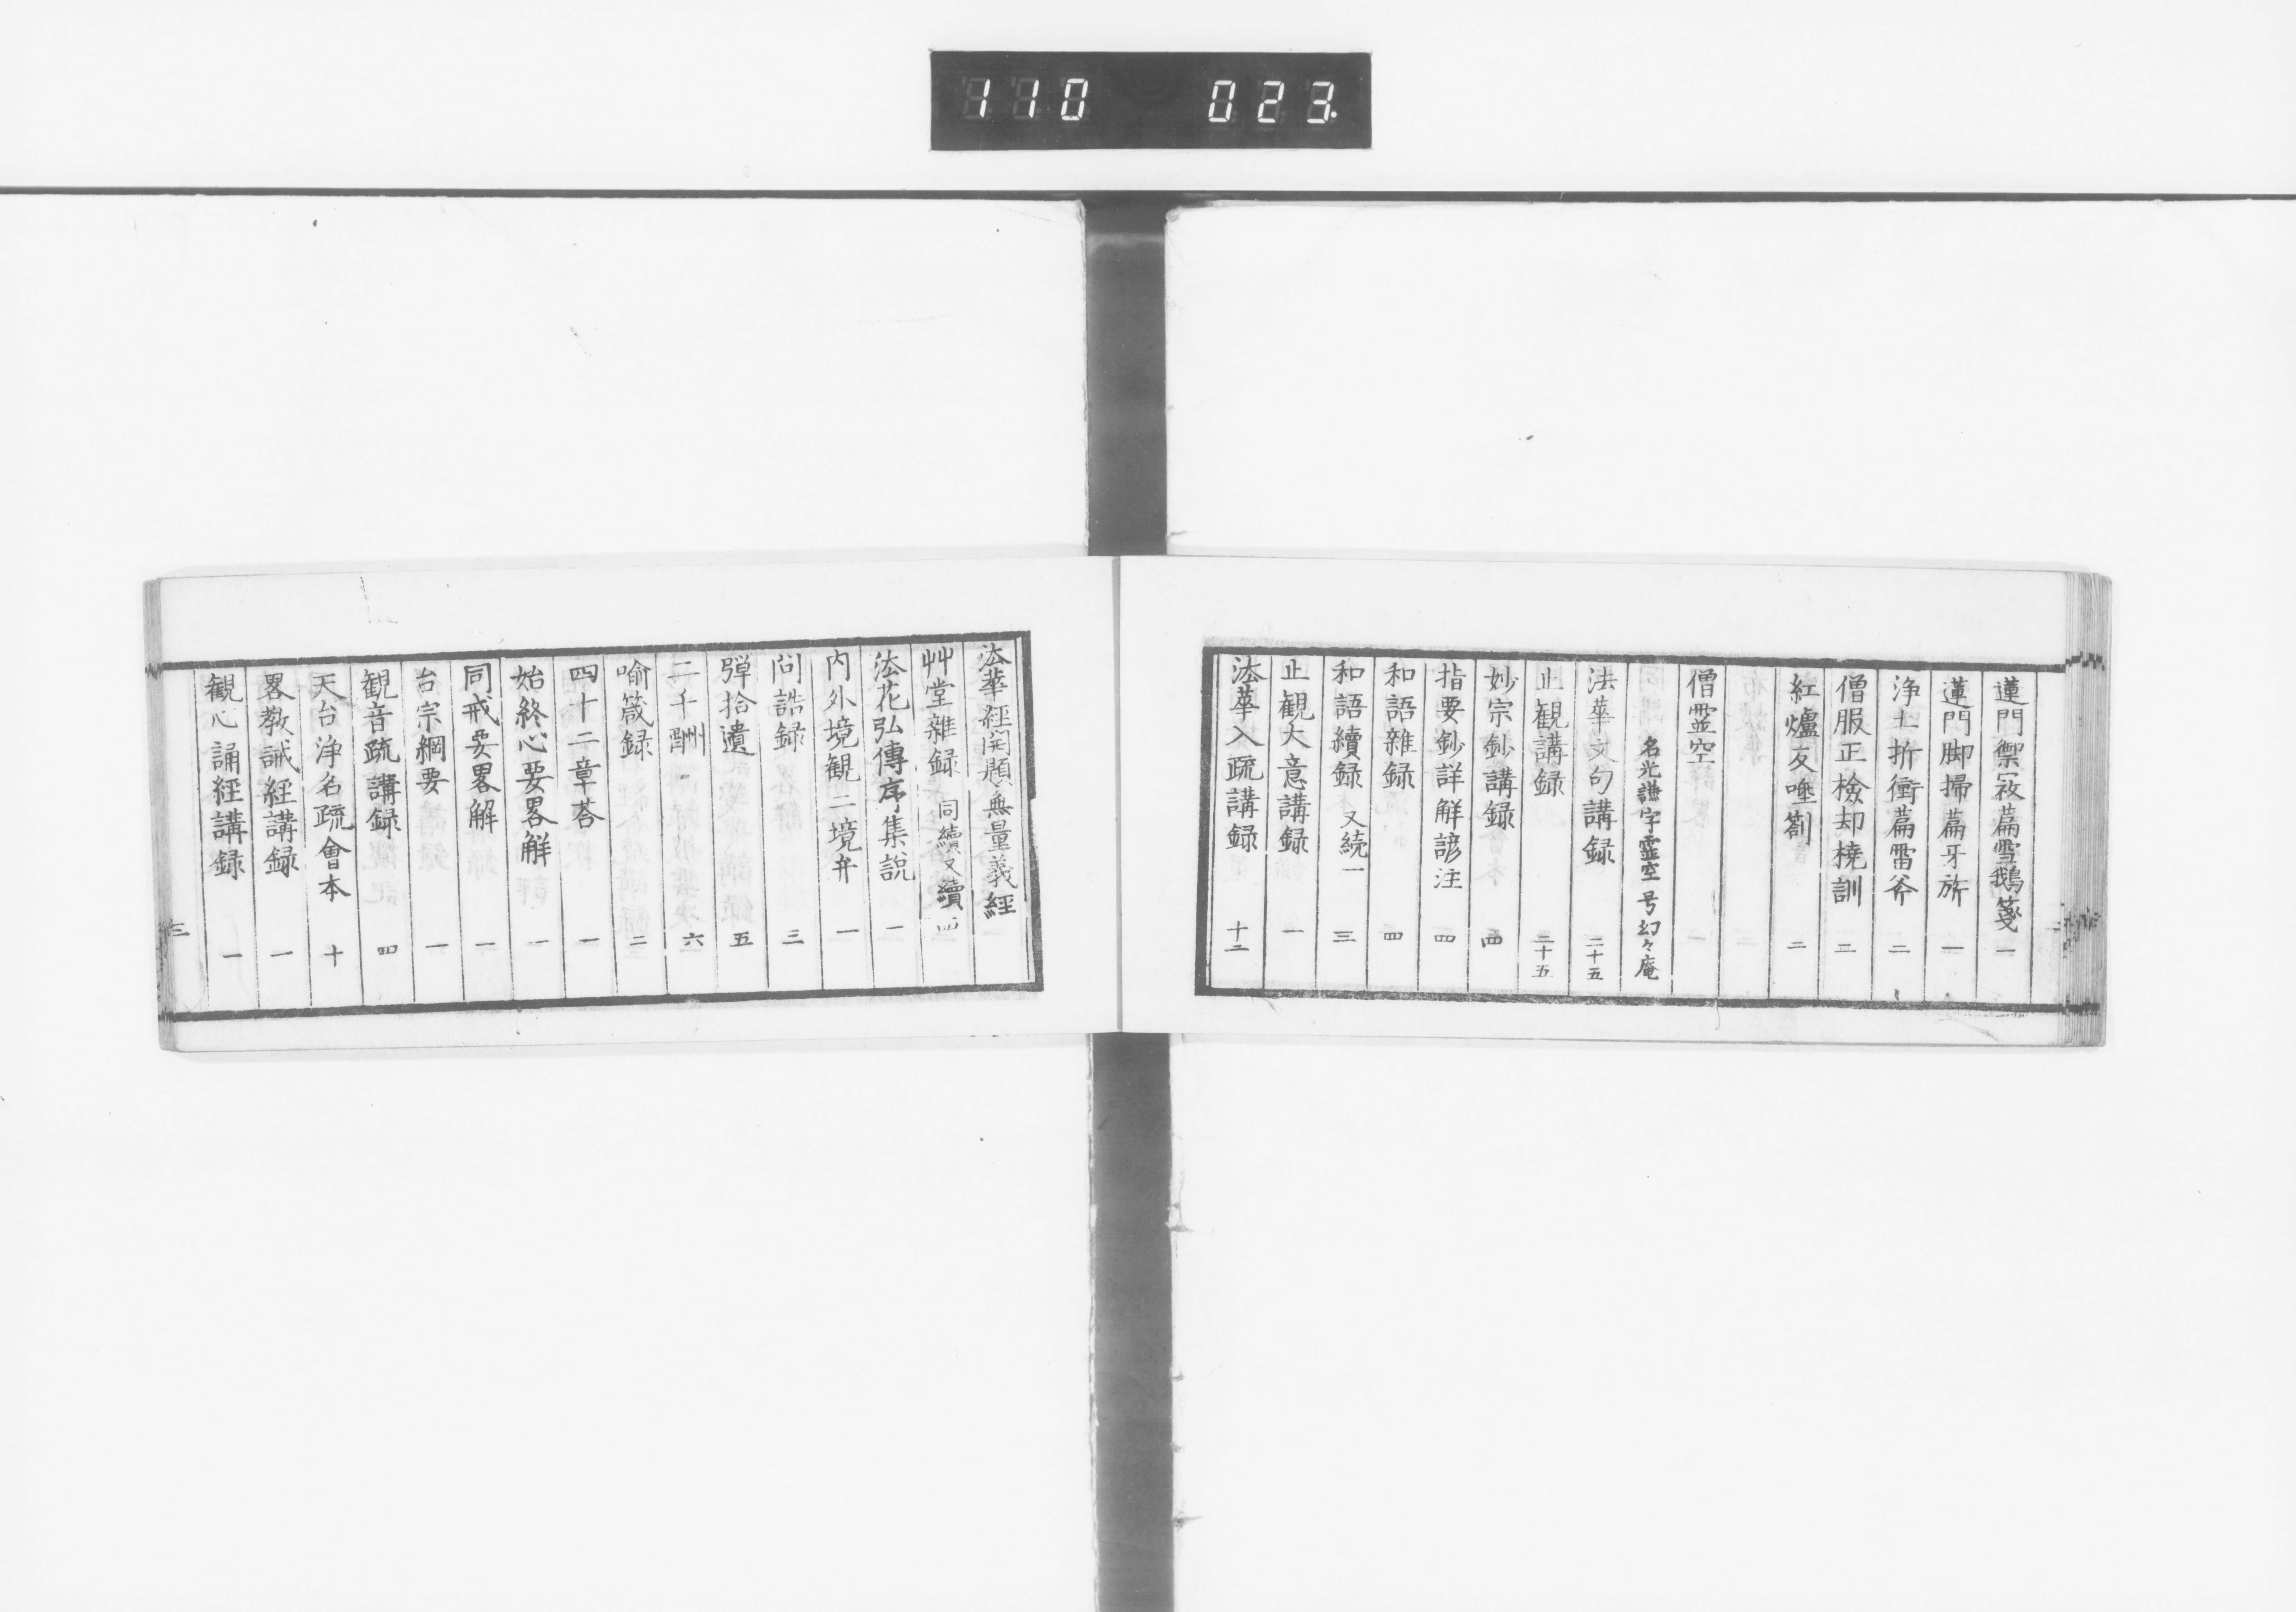 110 023
蓮門禦冦萹雪鵝箋 一
蓮門脚掃萹牙旂 一
浄土折衝萹雷斧 二
僧服正檢却橈訓 二
紅爐反唾劄 二
僧霊空
名光謙字霊空号幻々庵
法華文句講録 二十五
止観講録 二十五
妙宗鈔講録 四
指要鈔詳解諺注 四
和語雜録 四
和語續録 又続一 三
止観大意講録 一
法華入疏講録 十二
法華經開題無量義經
艸堂雜録 同續又續 四
法花弘傳序集説 一
内外境観二境弁 一
問誥録 三
彈拾遺 五
二千酬 六
喻箴録 二
四十二章荅 一
始終心要畧解 一
同戒要畧解 一
台宗綱要 一
観音疏講録 四
天台浄名疏會本 十
畧教誡經講録 一
観心誦經講録 一
三